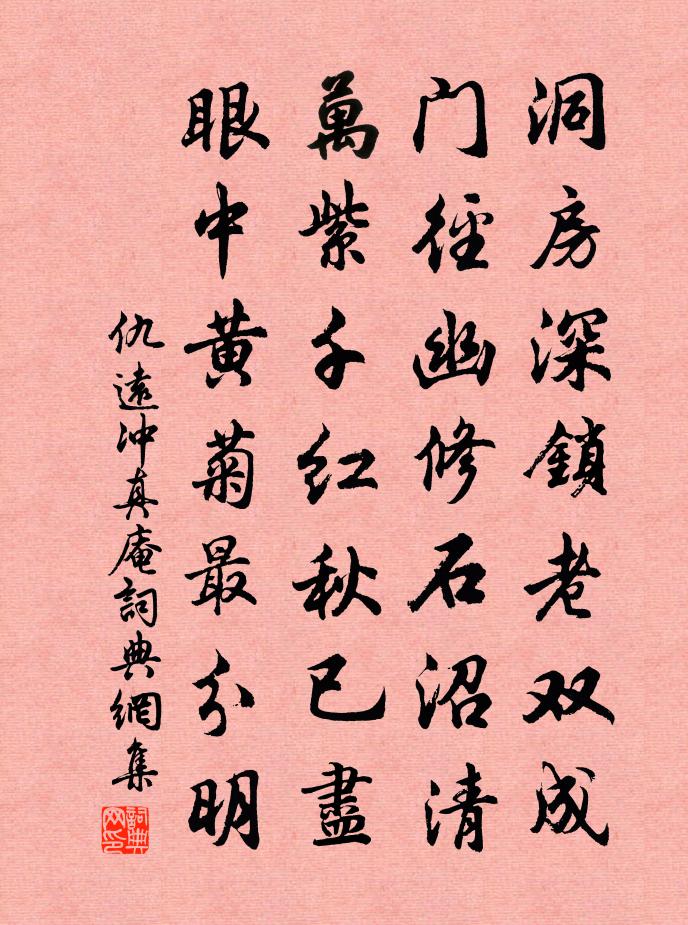 洞房深鎖老双成
门徑幽修石沼清
萬紫千红秋已盡
眼中黄菊最分明
仇遠冲真庵詞典網集
詞典网印